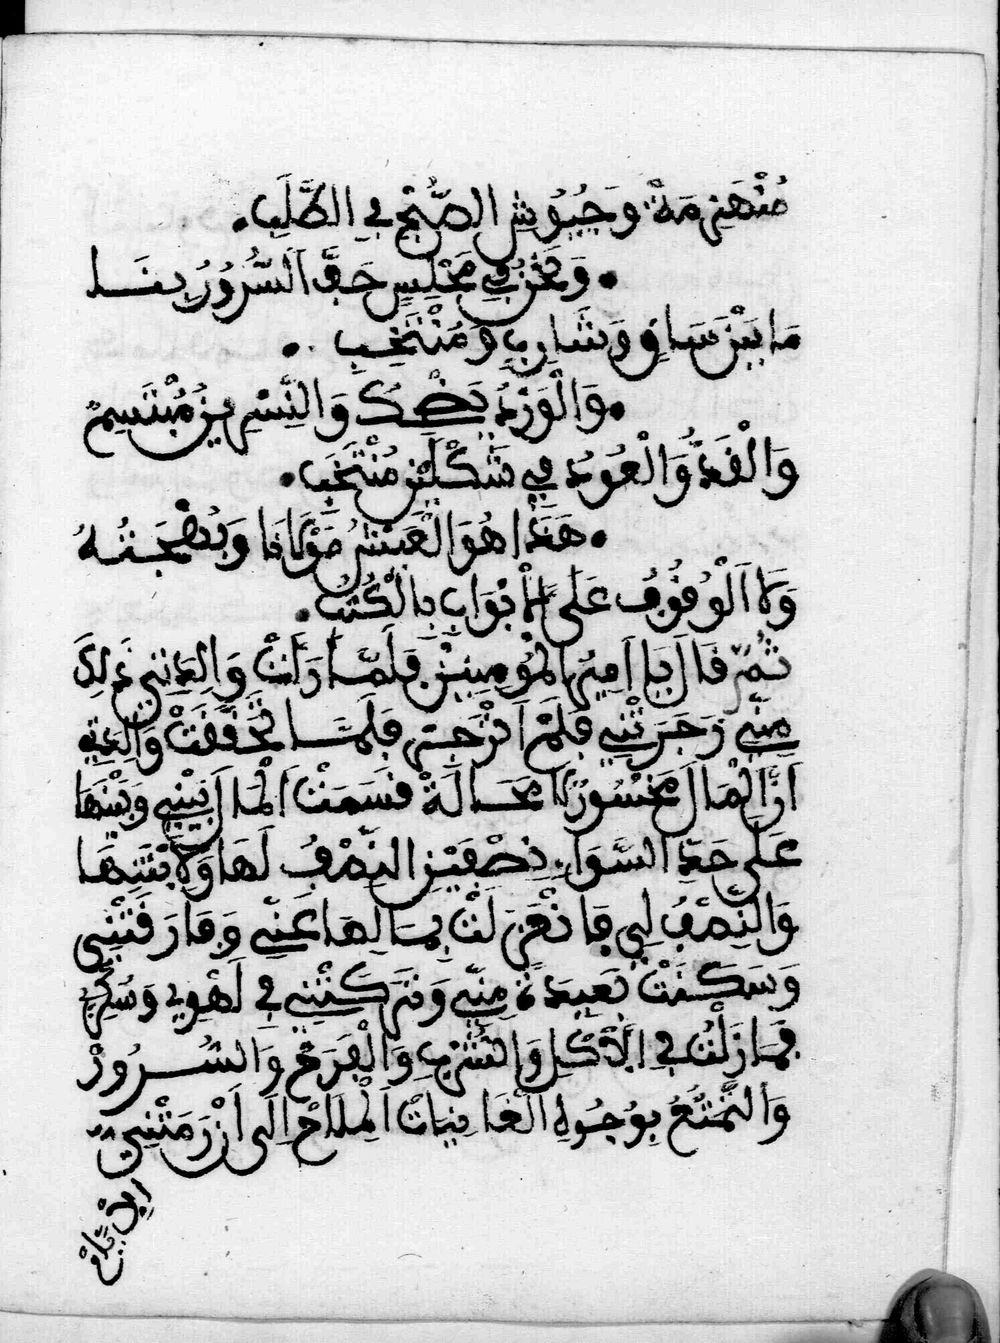 مُنْهَزِمَةٌ وَجُيُوشِ الصُّبْحِ فِي الطَّلَبِ.
. وَنَحْنُ فِي مَجْلِسٍ حَفَّ السُّرُورُ بِنَــا
مَا بَيْنَ سَاقٍ وَشَارِبٍ وَمُنْتَخَبِ . .
. وَالْوَرْدُ يَضْحَكُ وَالنِّسْرِينُ مُبْتَسِمٌ
وَالْقَدُّ وَالْعُودُ فِي شَكْلَيْنِ مُنْتَخَبِ.
. هَذَا هُوَ الْعَيْشُ مَوْلَانَا وَبَهْجَتُهُ
وَلَا الْوُقُوفُ عَلَى الْأَبْوَابِ بِالْكُتُبِ.
ثُمَّ قَالَ يَا أَمِيرَ الْمُومِنِينَ فَلَمَّا رَأَتْ وَالِدَتِي ذَلِكَ
مِنِّي زَجَرَتْنِي فَلَمْ أَنْزَجِرْ فَلَمَّــا تَحَقَّقَتْ وَالِدَتِي
أَنَّ الْمَالَ مَخْسُورٌ لَا مَحَــالَةَ قَسَمَتْ الْمَالَ بَيْنِي وَبَيْنَهَا
عَلَى حَدِّ السَّوَاءِ نِصْفَيْنِ النِّصْفُ لَهَا وَلِابْنَتِهَا
وَالنِّصْفُ لِي فَانْعَزَلَتْ بِمَــالِهَا عَنِّي وَفَارَقَتْنِي
وَسَكَنَتْ بَعِيدَةً مِنِّي وَتَرَكَتْنِي فِي لَهْوِي وَسُكْرِي
فَمَا زِلْتُ فِي الْأَكْلِ وَالشُّرْبِ وَالْفَرَحِ وَالسُّــرُورِ
وَالتَّمَتُّعِ بِوُجُوهِ الْغَانِيَاتِ الْمِلَاحِ إِلَى أَنْ رَمَتْنِي